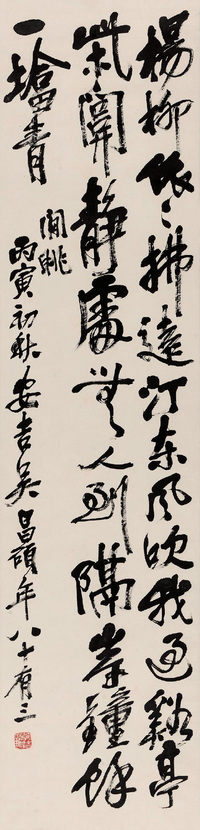 楊柳依〻拂遠汀東風吹我過谿亭
靜處無人到隔岸鐘餘
一塔青
閒眺
丙寅初秋安吉吳昌碩年八十有三